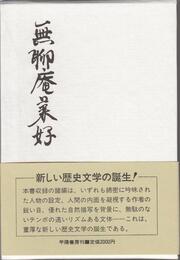 無聊庵兼好
新しい歴史文学の誕生!
本書収録の諸編は、いずれも綿密に吟味され
た人物の設定、人間の内面を凝視する作者の
鋭い目、優れた自然描写を背景に、無駄のない
テンポの速いリズムある文体──これは、
重厚な新しい歴史文学の誕生である。
甲陽書房刊■定価2000円